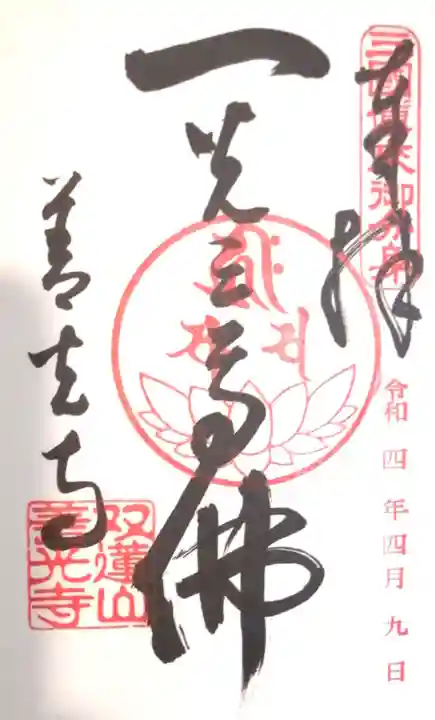 奉拝
三國傳来御分身
令和四年四月九日
一光三尊佛
善光寺
双蓮山
善光寺